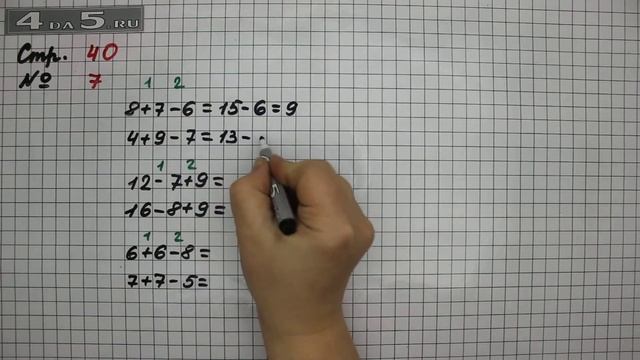 4DA5.RU
Стр. 40
№ 7
1 2
8+7-6=15-6=9
4+9-7=13-
1 2
12-7+9=
16-8+9=
1 2
6+6-8=
7+7-5=